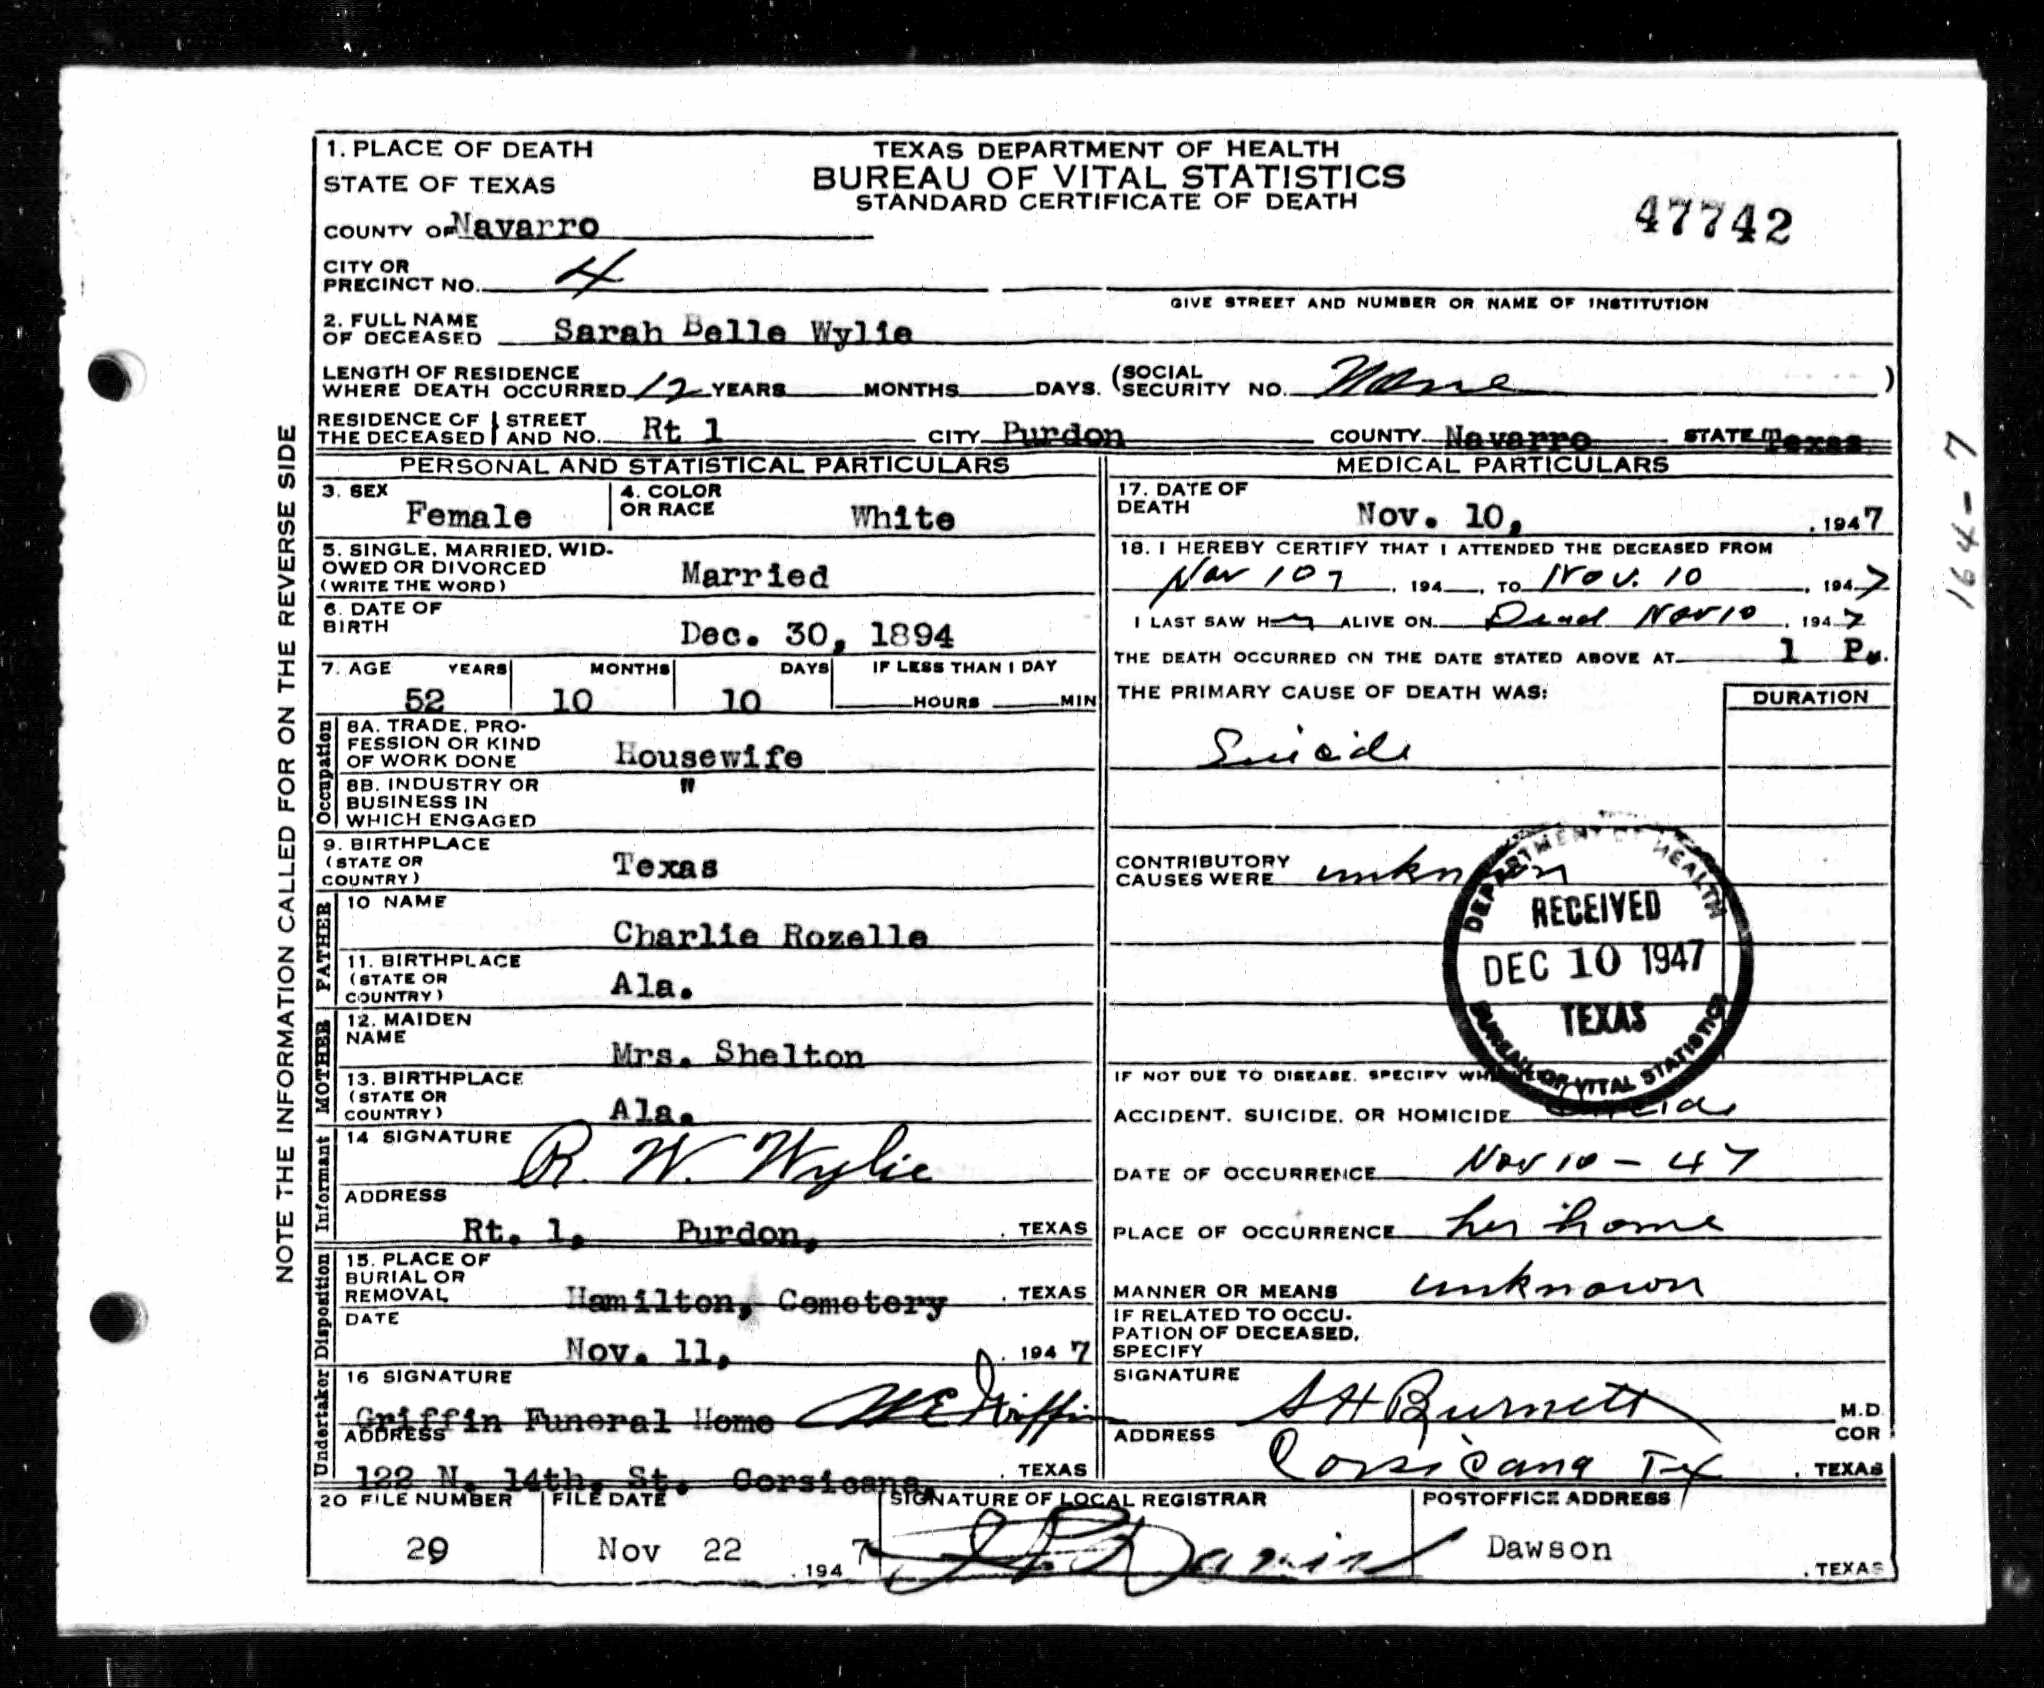 1. PLACE OF DEATH
STATE OF TEXAS
COUNTY OF Navarro
CITY OR
PRECINCT NO. 4
TEXAS DEPARTMENT OF HEALTH
BUREAU OF VITAL STATISTICS
STANDARD CERTIFICATE OF DEATH
47742
GIVE STREET AND NUMBER OR NAME OF INSTITUTION
2. FULL NAME
OF DECEASED Sarah Belle Wylie
LENGTH OF RESIDENCE
WHERE DEATH OCCURRED 12 YEARS MONTHS DAYS. (SOCIAL
(SECURITY NO. None )
RESIDENCE OF STREET
THE DECEASED AND NO. Rt 1 CITY Purdon COUNTY Navarro STATE Texas.
NOTE THE INFORMATION CALLED FOR ON THE REVERSE SIDE
164-7
PERSONAL AND STATISTICAL PARTICULARS
3. SEX
Female
4. COLOR
OR RACE
White
5. SINGLE, MARRIED, WID-
OWED OR DIVORCED
(WRITE THE WORD)
Married
6. DATE OF
BIRTH
Dec. 30, 1894
7. AGE YEARS MONTHS DAYS IF LESS THAN 1 DAY
52 10 10 HOURS MIN
Occupation
8A. TRADE, PRO-
FESSION OR KIND
OF WORK DONE Housewife
8B. INDUSTRY OR "
BUSINESS IN
WHICH ENGAGED
9. BIRTHPLACE
(STATE OR
COUNTRY) Texas
FATHER
10 NAME
Charlie Rozelle
11. BIRTHPLACE
(STATE OR
COUNTRY) Ala.
MOTHER
12. MAIDEN
NAME
Mrs. Shelton
13. BIRTHPLACE
(STATE OR
COUNTRY) Ala.
Informant
14 SIGNATURE R. W. Wylie
ADDRESS
Rt. 1, Purdon, . TEXAS
Disposition
15. PLACE OF
BURIAL OR
REMOVAL Hamilton, Cemetery . TEXAS
DATE
Nov. 11, . 1947
Undertaker
16 SIGNATURE
Griffin Funeral Home W E Griffin
ADDRESS
122 N. 14th, St. Corsicana, . TEXAS
MEDICAL PARTICULARS
17. DATE OF
DEATH Nov. 10, . 1947
18. I HEREBY CERTIFY THAT I ATTENDED THE DECEASED FROM
Nov 10 . 194 , TO Nov. 10 , 1947
I LAST SAW Her ALIVE ON Dead Nov 10 , 1947
THE DEATH OCCURRED ON THE DATE STATED ABOVE AT 1 P M.
THE PRIMARY CAUSE OF DEATH WAS:
DURATION
Suicide
CONTRIBUTORY
CAUSES WERE unknown
DEPARTMENT OF HEALTH
RECEIVED
DEC 10 1947
TEXAS
BUREAU OF VITAL STATISTICS
IF NOT DUE TO DISEASE, SPECIFY
ACCIDENT, SUICIDE, OR HOMICIDE Suicide
DATE OF OCCURRENCE Nov 10 - 47
PLACE OF OCCURRENCE her home
MANNER OR MEANS unknown
IF RELATED TO OCCU-
PATION OF DECEASED,
SPECIFY
SIGNATURE S H Burnett M.D.
COR
ADDRESS Corsicana Tx . TEXAS
20 FILE NUMBER
29
FILE DATE
Nov 22 . 1947
SIGNATURE OF LOCAL REGISTRAR
POSTOFFICE ADDRESS
Dawson
. TEXAS